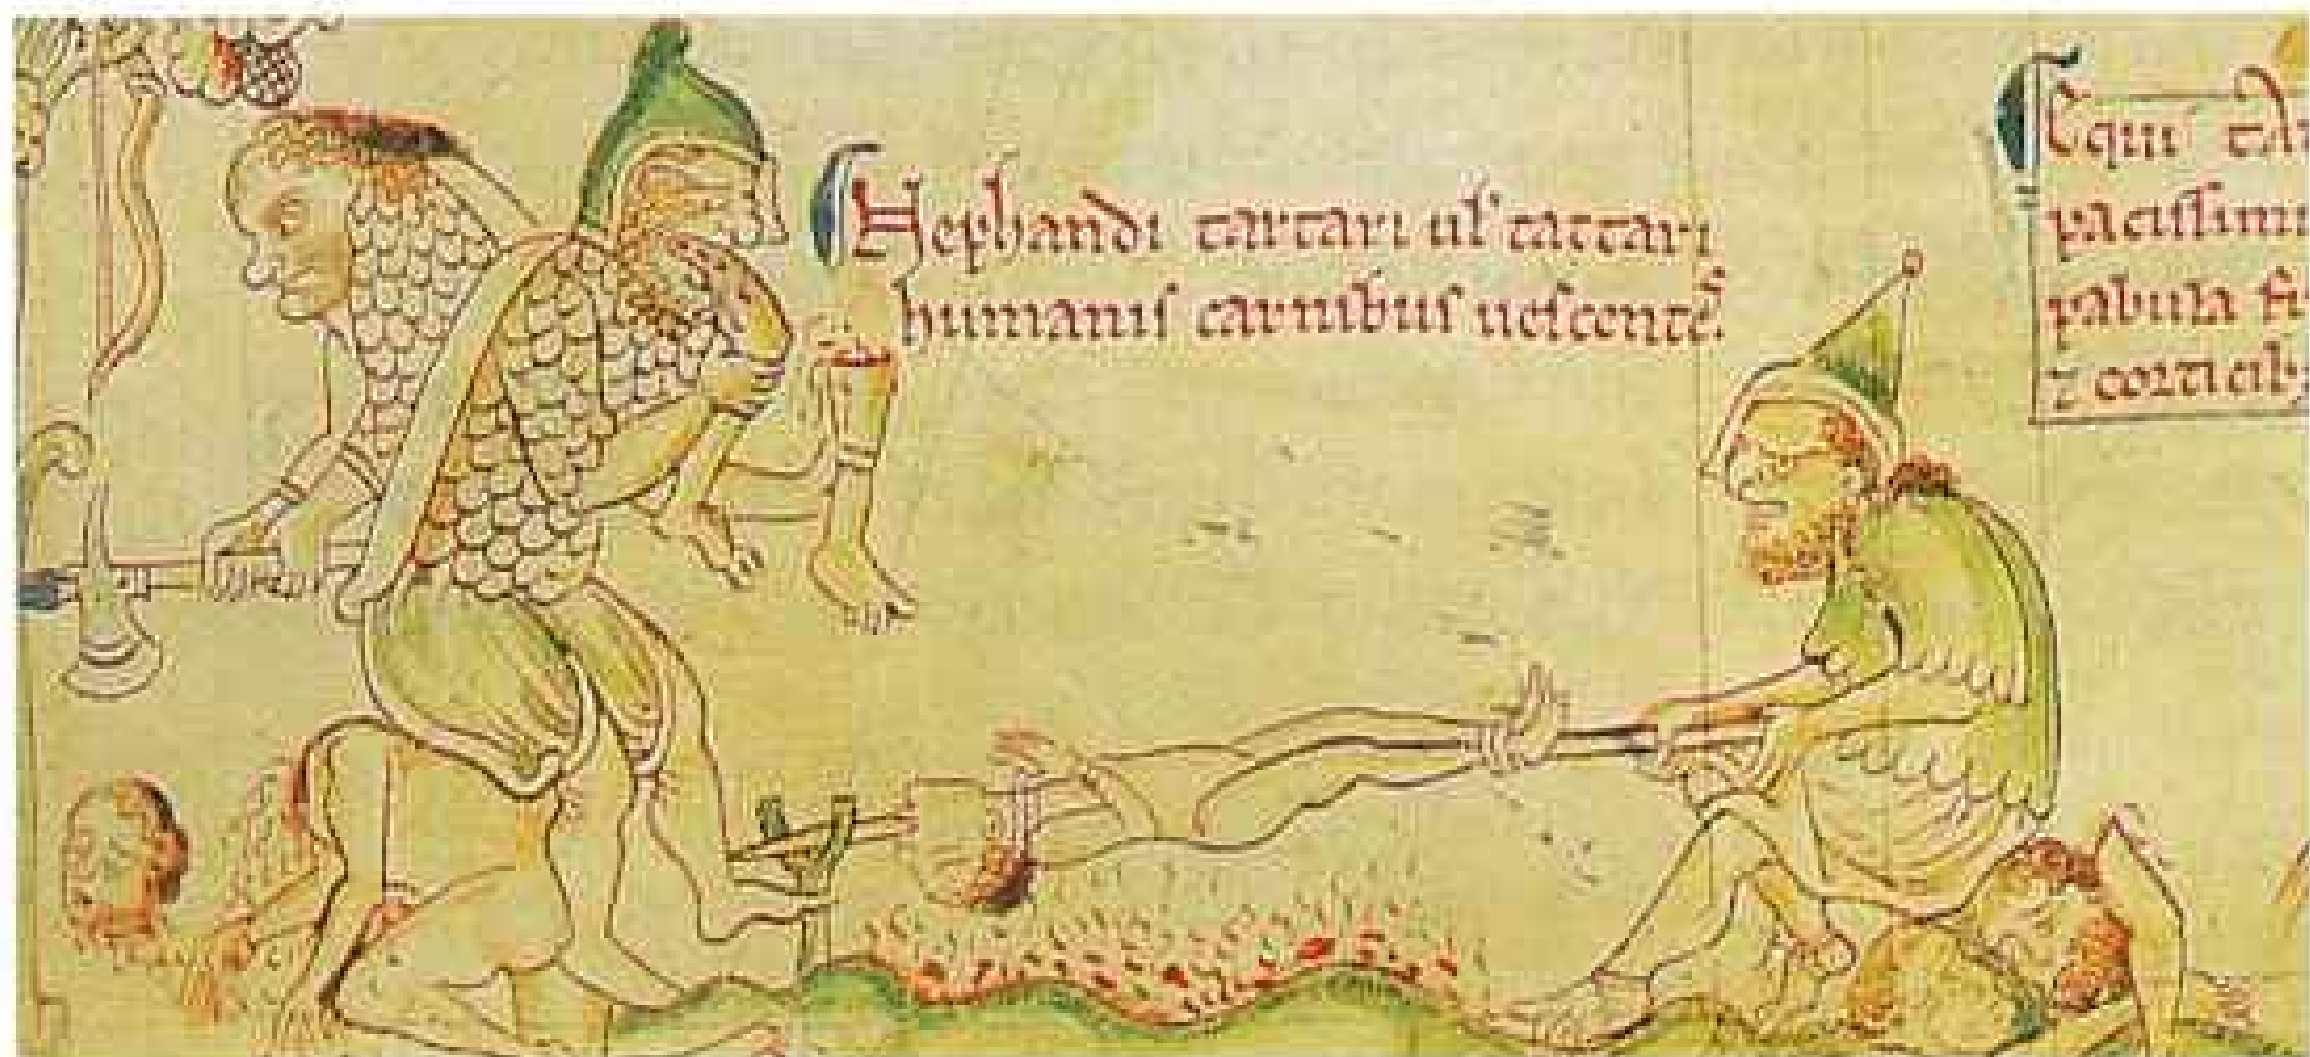 Nephandi tartari ul' tattari
humanis carnibus uescentes.
Equi
pacissimi
pabula
⁊ corticib;